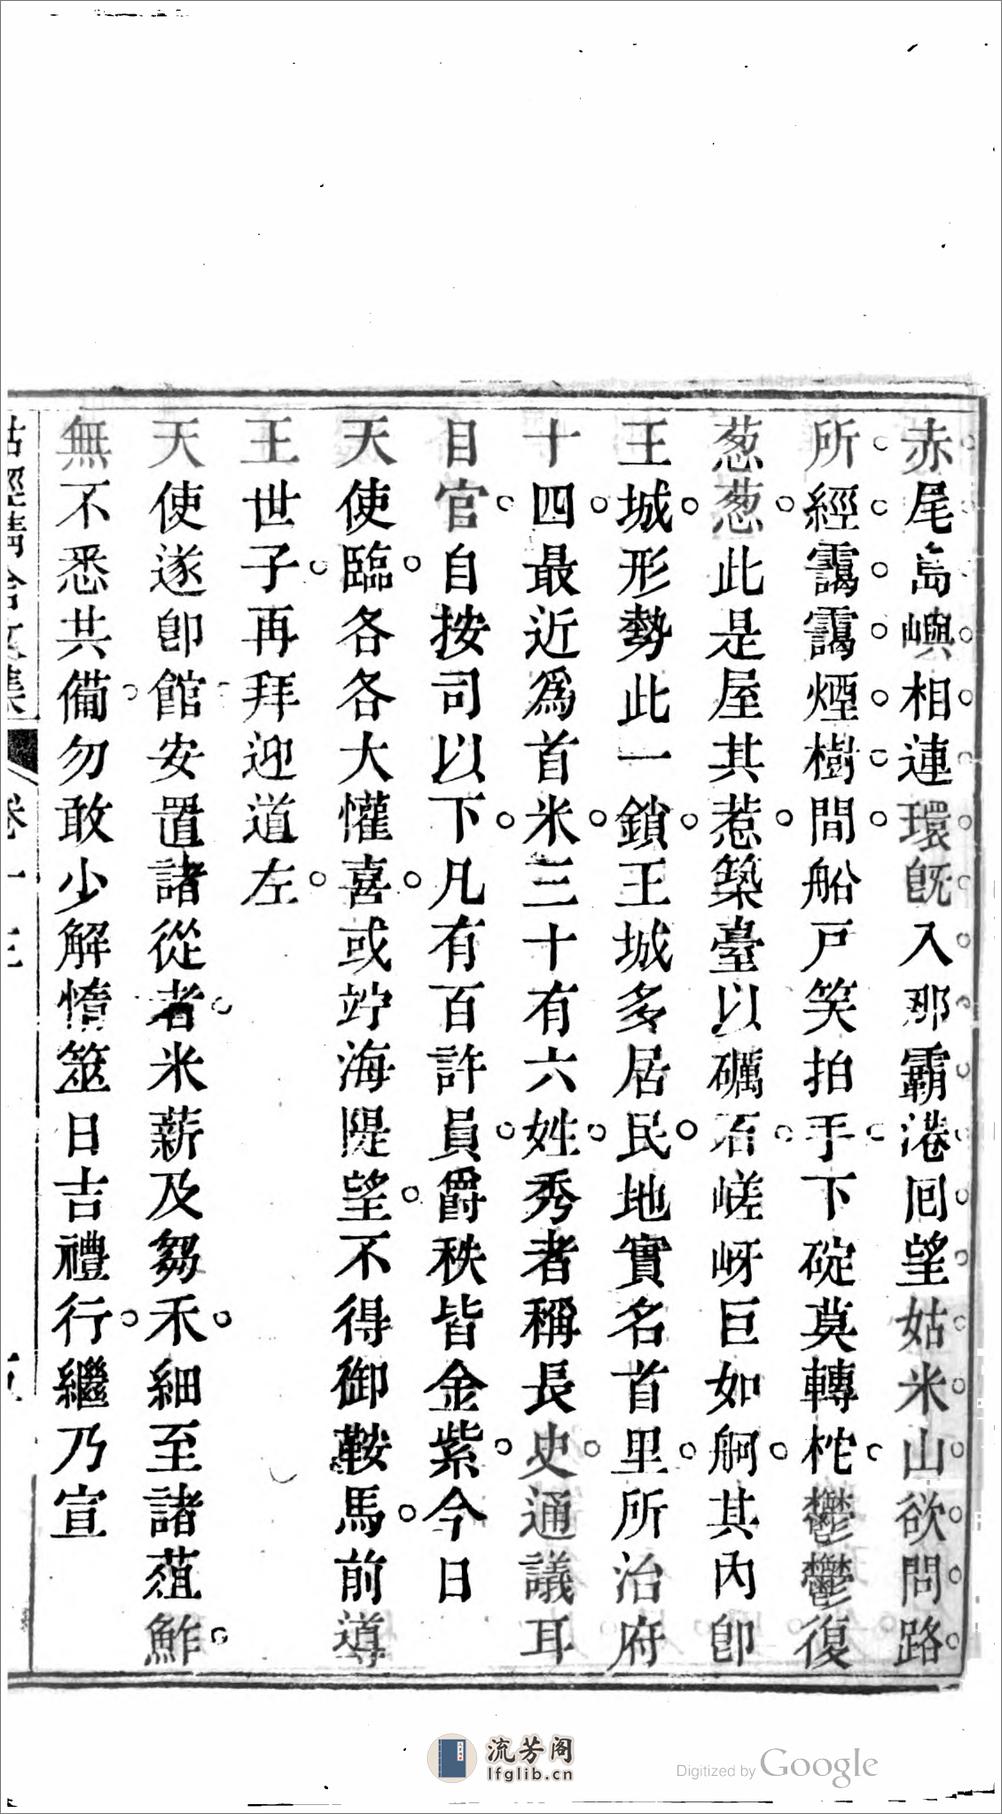 赤尾島嶼相連環旣入那霸港囘望姑米山欲問路
所經靄靄煙樹間船戸笑拍手下碇莫轉柁鬱鬱復
葱葱此是屋其惹築臺以礪石嵯岈巨如舸其內卽
王城形勢此一鎖王城多居民地實名首里所治府
十四最近爲首米三十有六姓秀者稱長史通議耳
目官自按司以下凡有百許員爵秩皆金紫今日
天使臨各各大懽喜或竚海隄望不得御鞍馬前導
王世子再拜迎道左
天使遂卽館安置諸從者米薪及芻禾細至諸葅鮓
無不悉共備勿敢少解惰筮日吉禮行繼乃宣
詁經精舍文集 卷十三
流芳阁
lfglib.cn
Digitized by Google